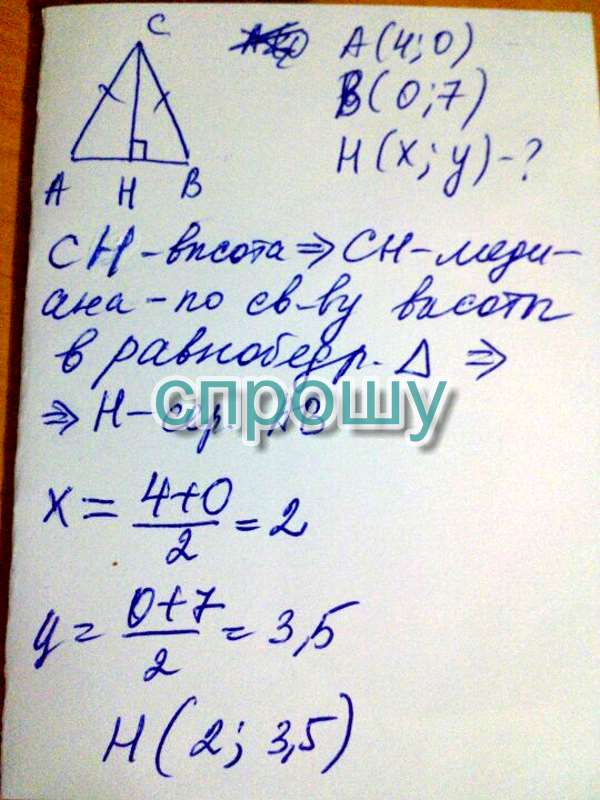 C
A H B
A(4;0)
B(0;7)
H(x;y)-?
CH-высота⇒CH-меди-
ана-по св-ву высоты
в равнобедр. Δ ⇒
⇒ H-сер. AB
спрошу
x = 4+0/2 = 2
y = 0+7/2 = 3,5
H(2; 3,5)